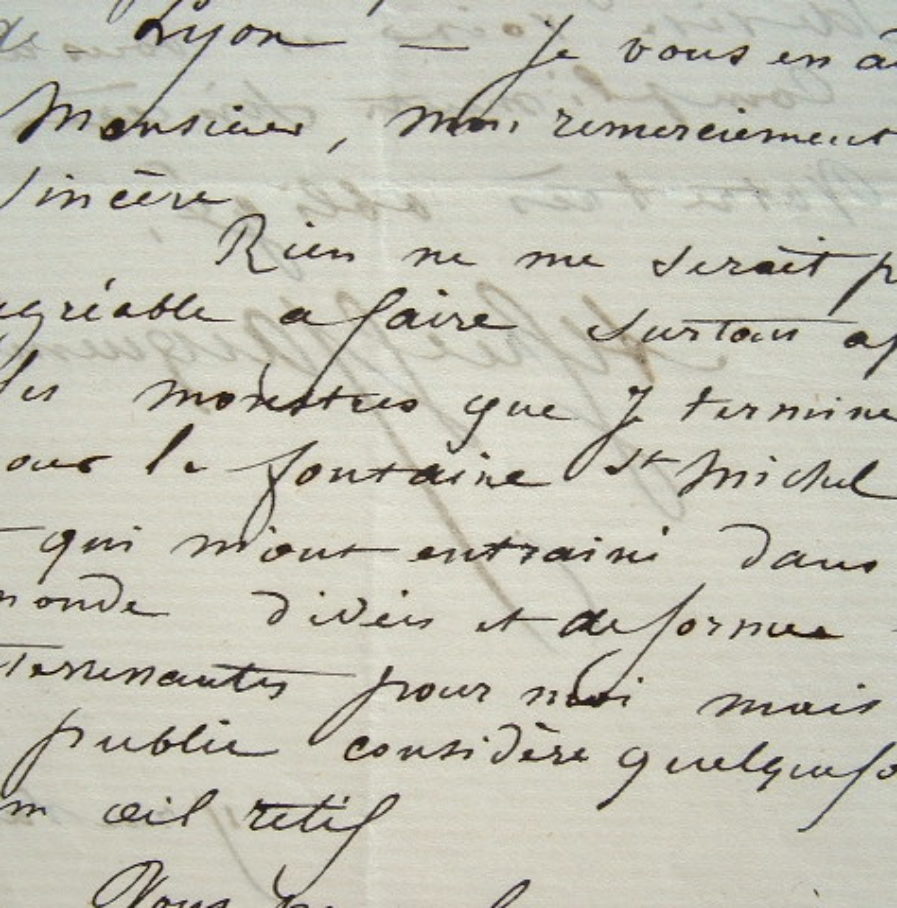 de Lyon — Je vous en a
Monsieur, mon remerciement
sincère
Rien ne me serait p
agréable a faire surtout ap
les monstres que J termine
our la fontaine St Michel
t qui m'ont entrainé dans
monde d'idées et de formes
terressantes pour moi mais
public considère quelquefo
un œil retif
Vous